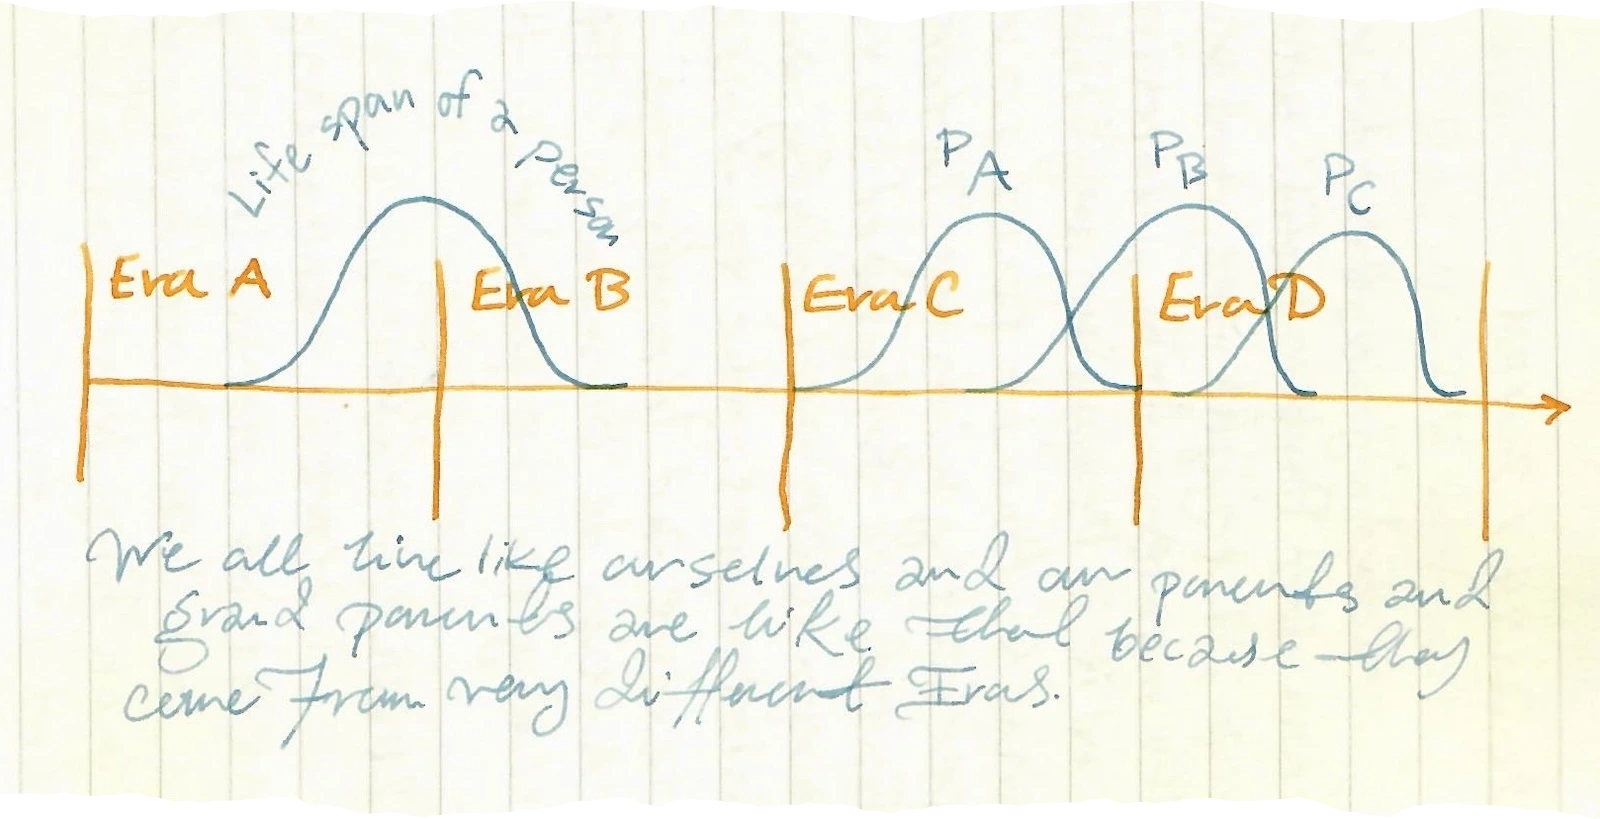 Life span of a person
PA
PB
PC
Era A
Era B
Era C
Era D
We all live like ourselves and our parents and
grand parents are like that because they
come from very different Eras.